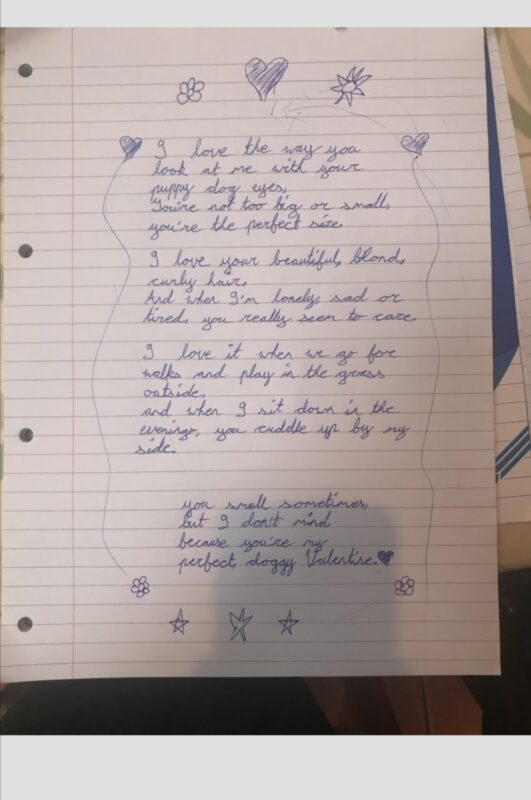 I love the way you
look at me with your
puppy dog eyes,
You're not too big or small,
you're the perfect size.
I love your beautiful, blond,
curly hair.
And when I'm lonely, sad or
tired, you really seem to care.
I love it when we go for
walks and play in the grass
outside,
and when I sit down in the
evenings, you cuddle up by my
side.
you smell sometimes,
but I don't mind
because you're my
perfect doggy Valentine.